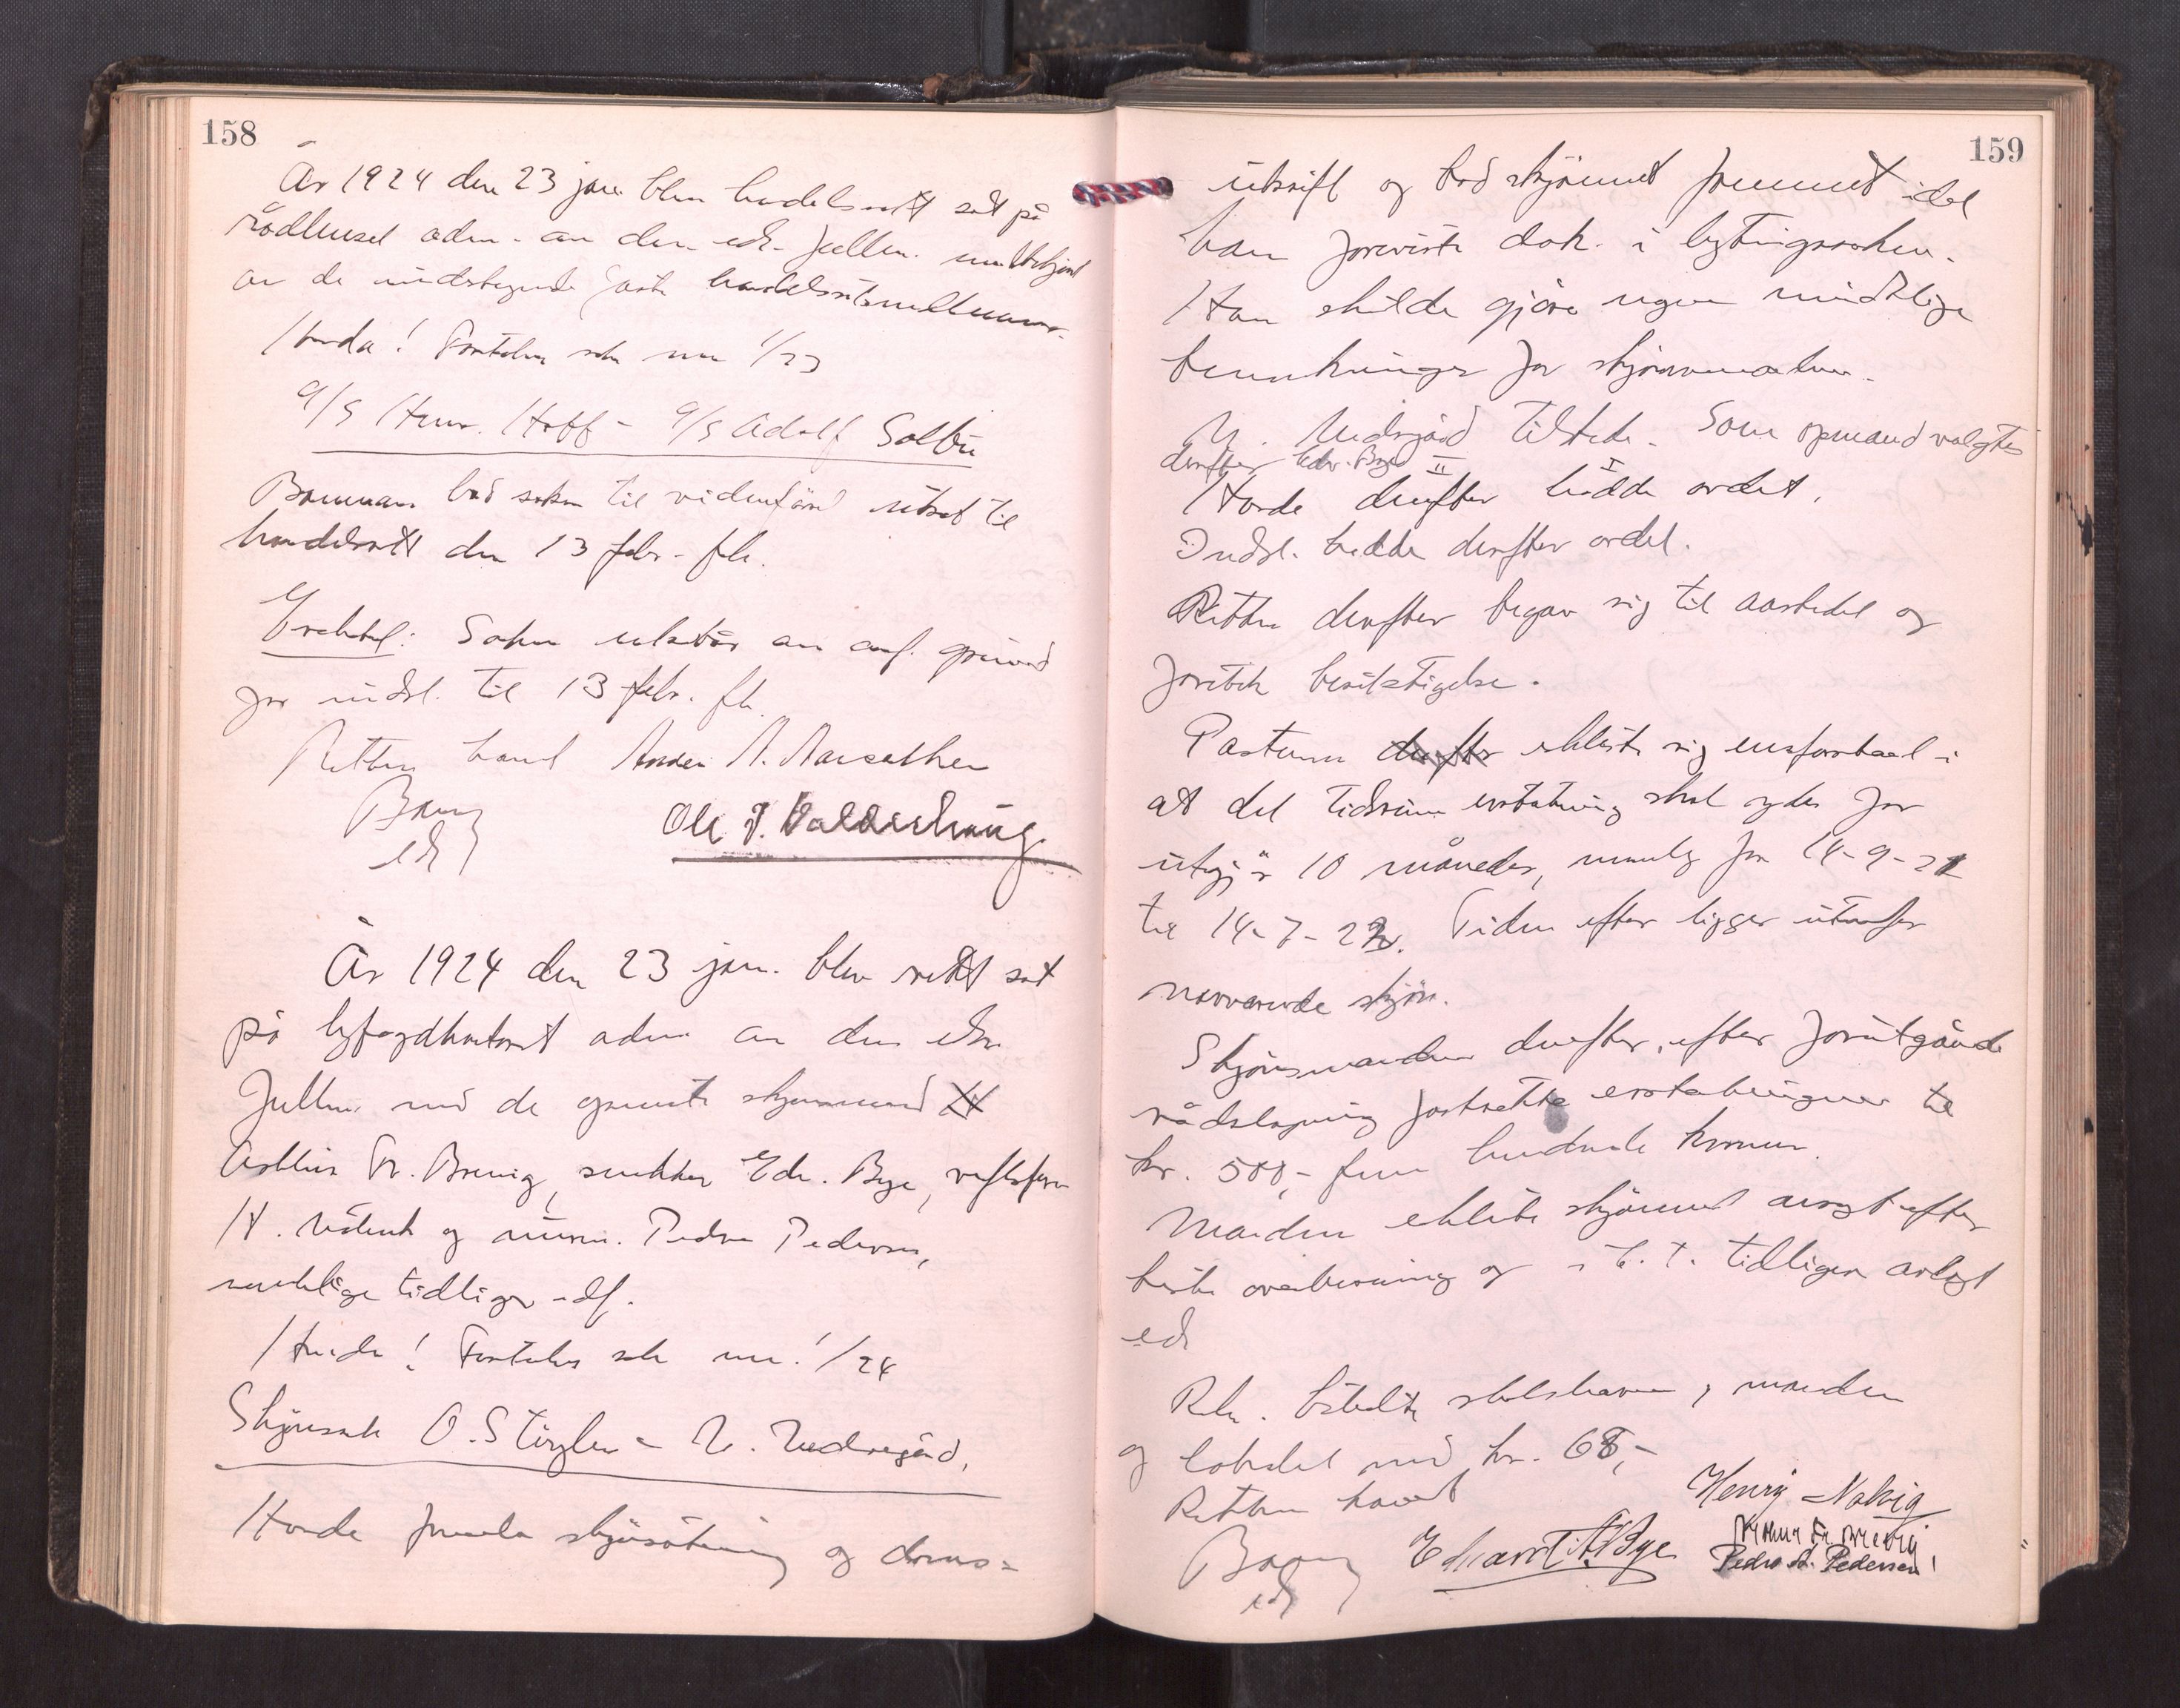 158
År 1924 den 23 jan. blev handelsrett sat på
rådhuset adm. av den edsv. fullm. med bistand
av de undertegnede faste handelsrettsmeddommere
Hvorda! Foretokes sak nr 1/23
A/S Henr. Hoff - A/S Adolf Solbu
Bommen bad saken til vidneførsel utsat til
handelsrett den 13 febr. ftk.
Eragtet: Saken utsattes av anf. grund
for indst. til 13 febr. ftk.
Retten hævet
Ole J. Valderhaug
År 1924 den 23 jan. blev rett sat
på byfogdkontoret adm. av den edsv.
fullm. med de opnævnte skjønsmænd
Arthur Fr. Brevig, snekker Edv. Bye,
H. og murm. Pedro Pedersen,
samtlige tidligere edf.
Hvorda! Foretokes sak nr. 1/24
Skjønsak O. Stüzler - N. Nedregård,
Horde fremla skjønsbegjæring og doms=
159
utskrift og bad skjønnet fremmet idet
han foreviste dok. i bytingssaken.
Han skulde gjøre nogen mundtlige
bemerkninger for skjønsmændene.
N. Nedregård tilstede. Som opmand valgtes
derefter Edv. Bye II I
Horde derefter hadde ordet.
Indst. hadde derefter ordet.
Retten derefter begav sig til aastedet og
foretok besiktigelse.
Partene derefter erklærte sig enige forstaaet i
at det tidsrum erstatning skal ydes for
utgjør 10 måneder, nemlig fra 14-9-21
til 14-7-22. Tiden efter ligger utenfor
nærværende skjøn.
Skjønsmændene derefter, efter forutgående
rådslagning fastsatte erstatningen til
kr. 500,- fem hundrede kroner.
Mændene erklærte skjønnet avsagt efter
beste overbevisning og i h. t. tidligere avlagt
ed
Rek. betalte rettshaver, mænden
og lokalet med kr. 68,-
Retten hævet
Henrij Nakvig
Edvard A Bye
Arthur Fr. Brevig
Pedro A. Pedersen